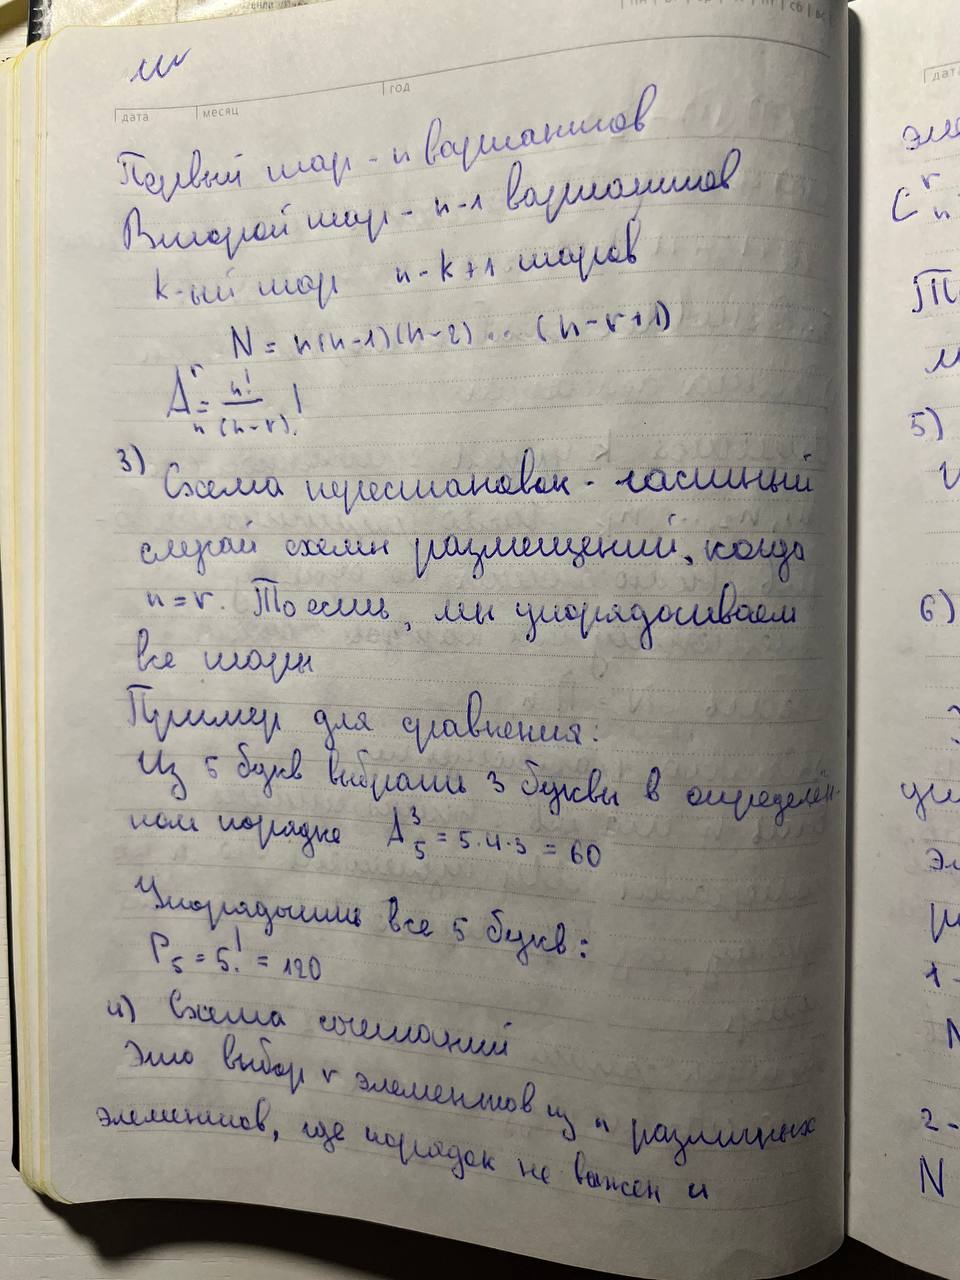 дата месяц год
Первый шар - n вариантов
Второй шар - n-1 вариантов
k-ый шар n-k+1 шаров
N = n(n-1)(n-2)... (n-r+1)
A_n^r = n!/(n-r)!
3) Схема перестановок - частный
случай схемы размещений, когда
n=r. То есть, мы упорядочиваем
все шары
Пример для сравнения:
Из 5 букв выбрать 3 буквы в определён-
ном порядке A_5^3 = 5·4·3 = 60
Упорядочить все 5 букв:
P_5 = 5! = 120
4) Схема сочетаний
Это выбор r элементов из n различных
элементов, где порядок не важен и
дата
5)
6)
1-
N
2-
N